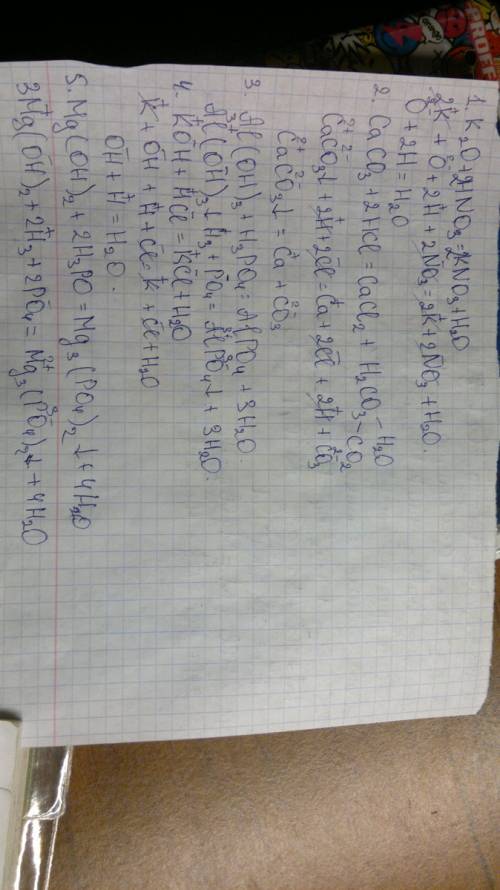 1. K₂O+2HNO₃=2KNO₃+H₂O
2K⁺ + O²⁻ + 2H⁺ + 2NO₃⁻ = 2K⁺ + 2NO₃⁻ + H₂O.
O + 2H = H₂O
2. CaCO₃ + 2HCl = CaCl₂ + H₂CO₃ – H₂O
CO₂
Ca²⁺CO₃²⁻↓ + 2H⁺ + 2Cl⁻ = Ca⁺ + 2Cl⁻ + 2H⁺ + CO₃²⁻
Ca²⁺CO₃²⁻↓ = Ca²⁺ + CO₃²⁻
3. Al(OH)₃ + H₃PO₄ = AlPO₄ + 3H₂O.
Al³⁺(OH⁻)₃↓ H₃⁺ + PO₄³⁻ = Al³⁺PO₄³⁻↓ + 3H₂O.
4. K⁺OH⁻ + H⁺Cl⁻ = K⁺Cl⁻ + H₂O
K⁺ + OH⁻ + H⁺ + Cl⁻ = K⁺ + Cl⁻ + H₂O
OH⁻ + H⁺ = H₂O.
5. Mg(OH)₂ + 2H₃PO = Mg₃(PO₄)₂↓ + 4H₂O
3Mg⁺(OH⁻)₂ + 2H₃⁺ + 2PO₄ = Mg₃²⁺(PO₄³⁻)₂↓ + 4H₂O